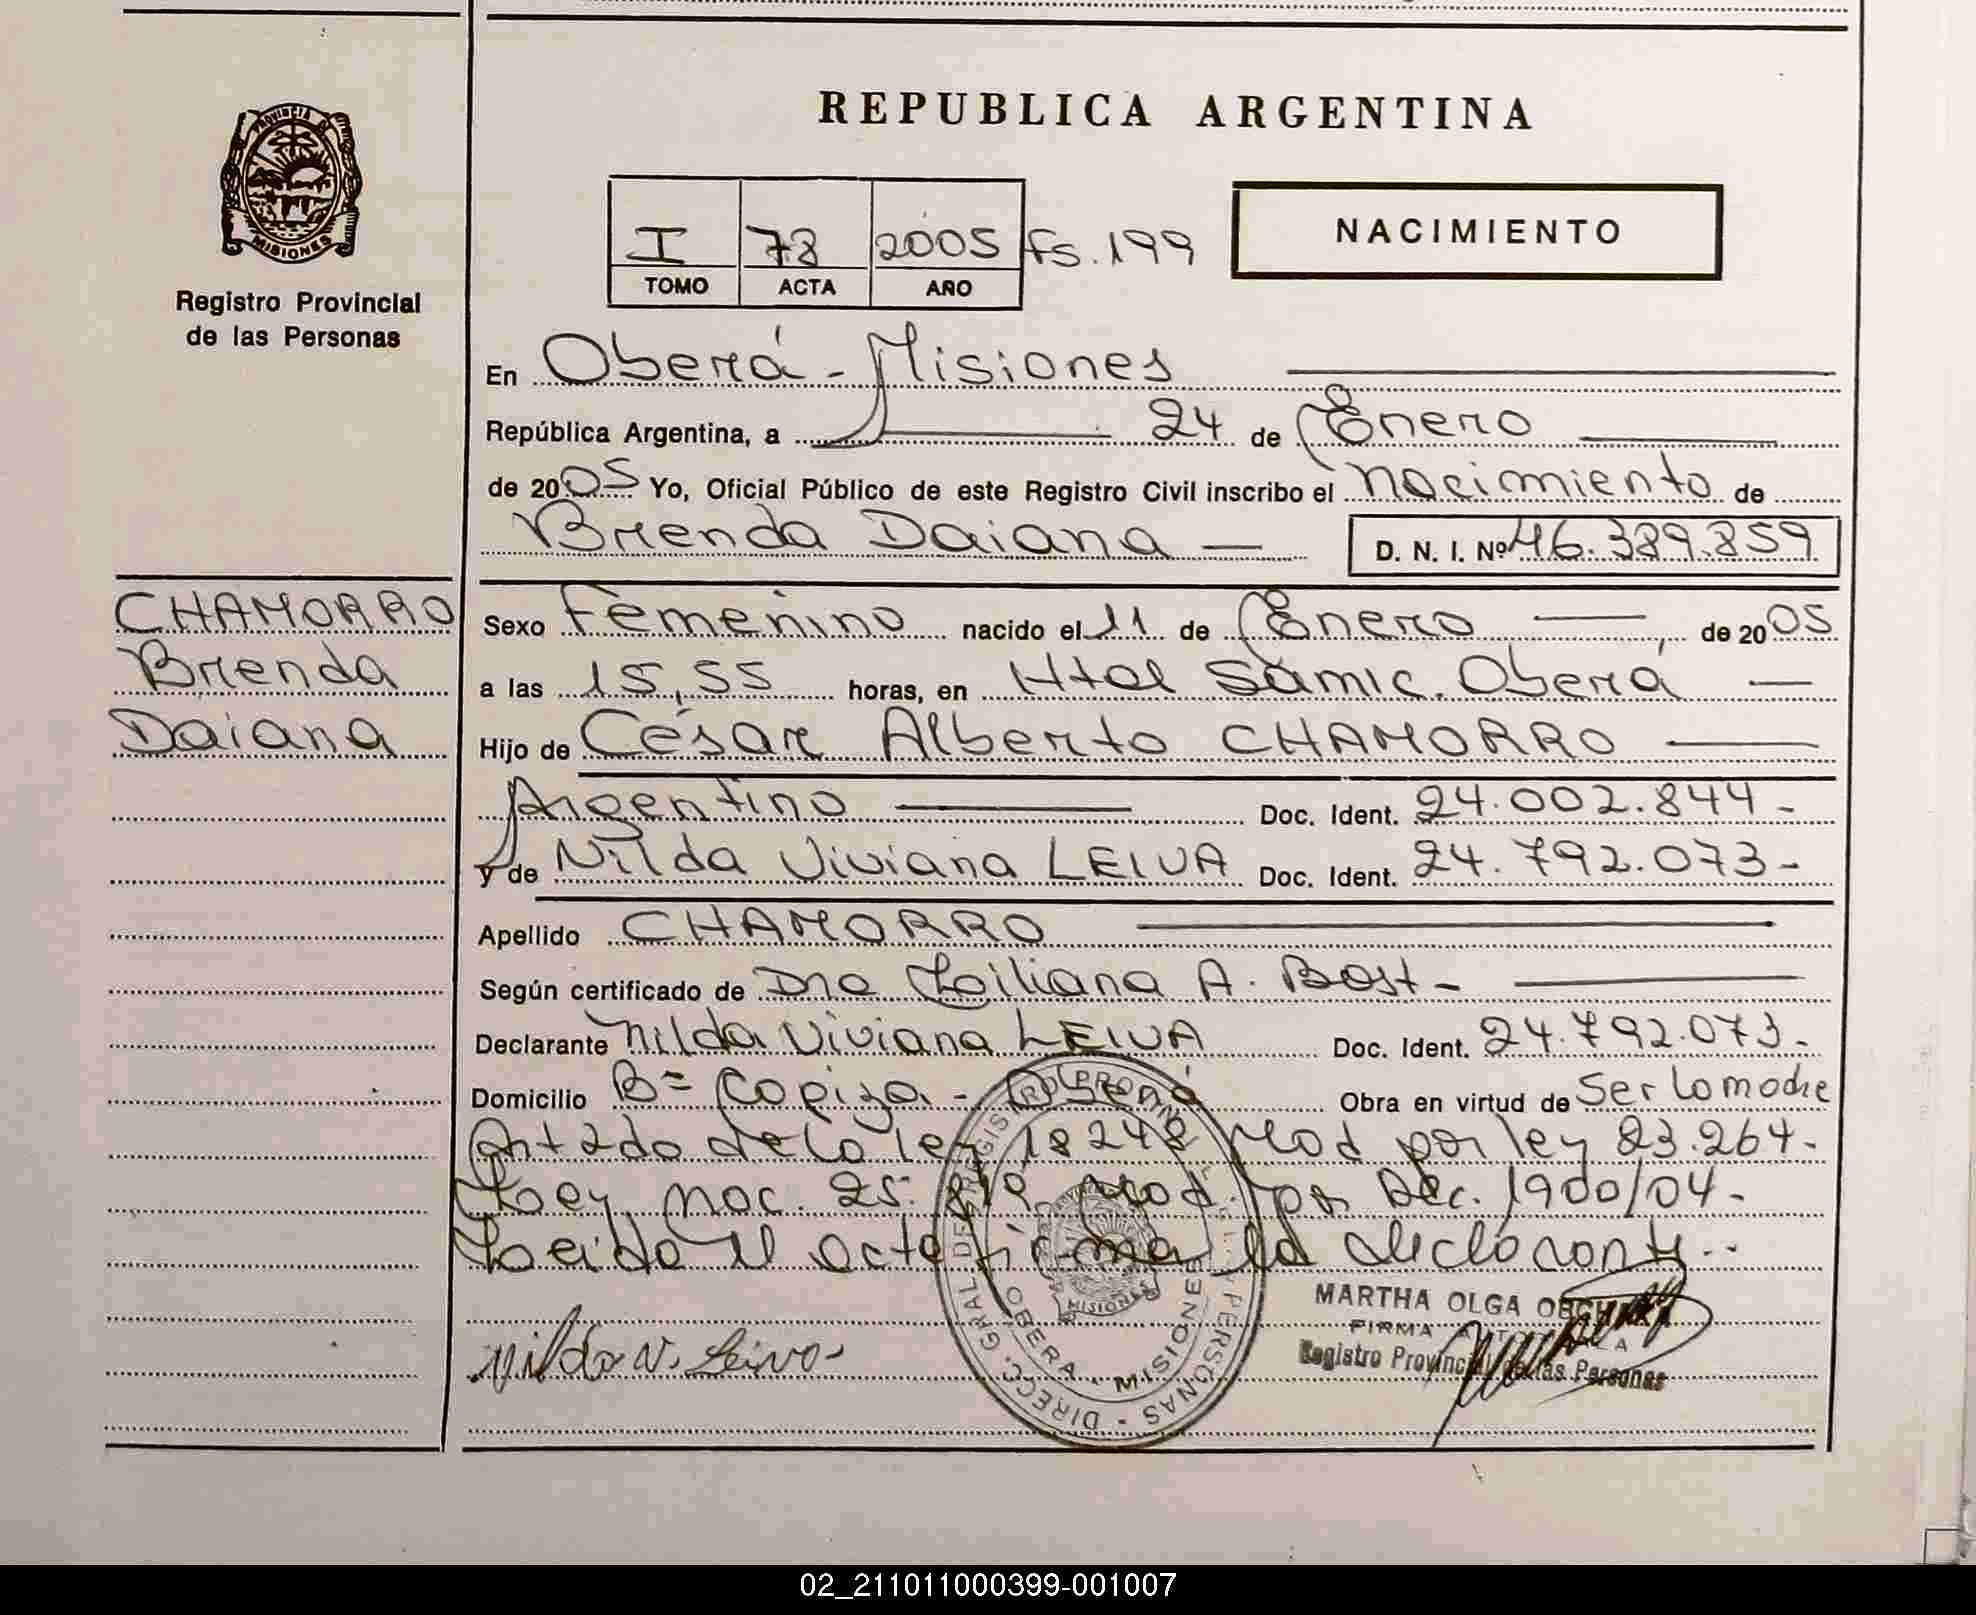 REPUBLICA ARGENTINA
PROVINCIA DE MISIONES
Registro Provincial
de las Personas
I 78 2005 Fs. 199
TOMO ACTA AÑO
NACIMIENTO
En Oberá - Misiones
República Argentina, a 24 de Enero
de 2005 Yo, Oficial Público de este Registro Civil inscribo el nacimiento de
Brenda Daiana D. N. I. Nº 46.389.859
CHAMORRO
Brenda
Daiana
Sexo Femenino nacido el 11 de Enero, de 2005
a las 15,55 horas, en Htal Samic. Oberá
Hijo de César Alberto CHAMORRO
Argentino Doc. Ident. 24.002.844-
y de Nilda Viviana LEIVA Doc. Ident. 24.792.073-
Apellido CHAMORRO
Según certificado de Dra Liliana A. Bost-
Declarante Nilda Viviana LEIVA Doc. Ident. 24.792.073.-
Domicilio Bº Copiza - Oberá Obra en virtud de Ser la madre
Ant 2do de la ley 18248 Mod por ley 23.264.-
Ley nac. 25.819 mod. por Dec. 1900/04-
Leida el acta firma la declarante..
MARTHA OLGA
FIRMA
Registro Provincial de las Personas
Nilda V. Leiva-
DIRECC. GRAL DE REGISTRO PROVINCIAL DE LAS PERSONAS -
OBERA - MISIONES
MISIONES
02_211011000399-001007